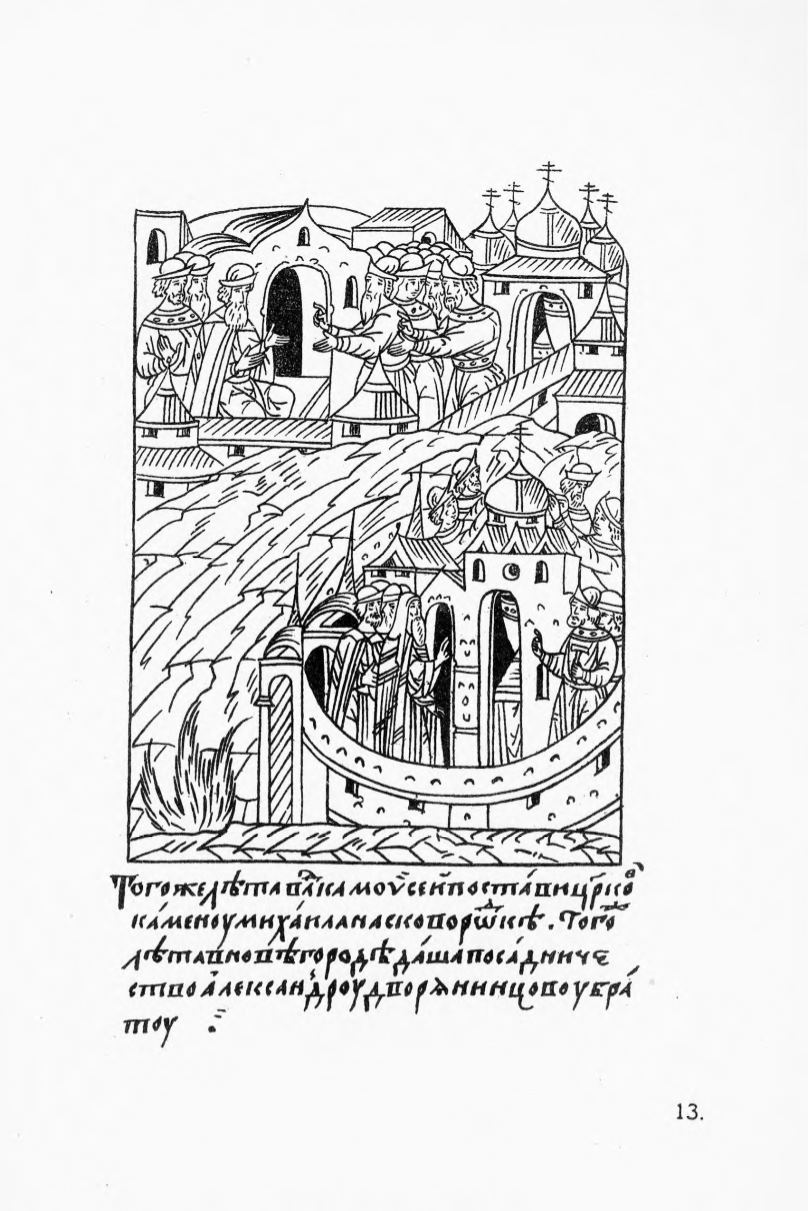 Тогоже лѣта влⷣка моѵ̈сей постави црⷪ҇ковь
ка́меноу миха́ила на сково рѡⷣкѣ. Тогоⷤ
лѣта в новѣгородѣ да́ша поса́дниче
ство а́леѯандроу дворѧнинцовоу бра́
тоу
13.